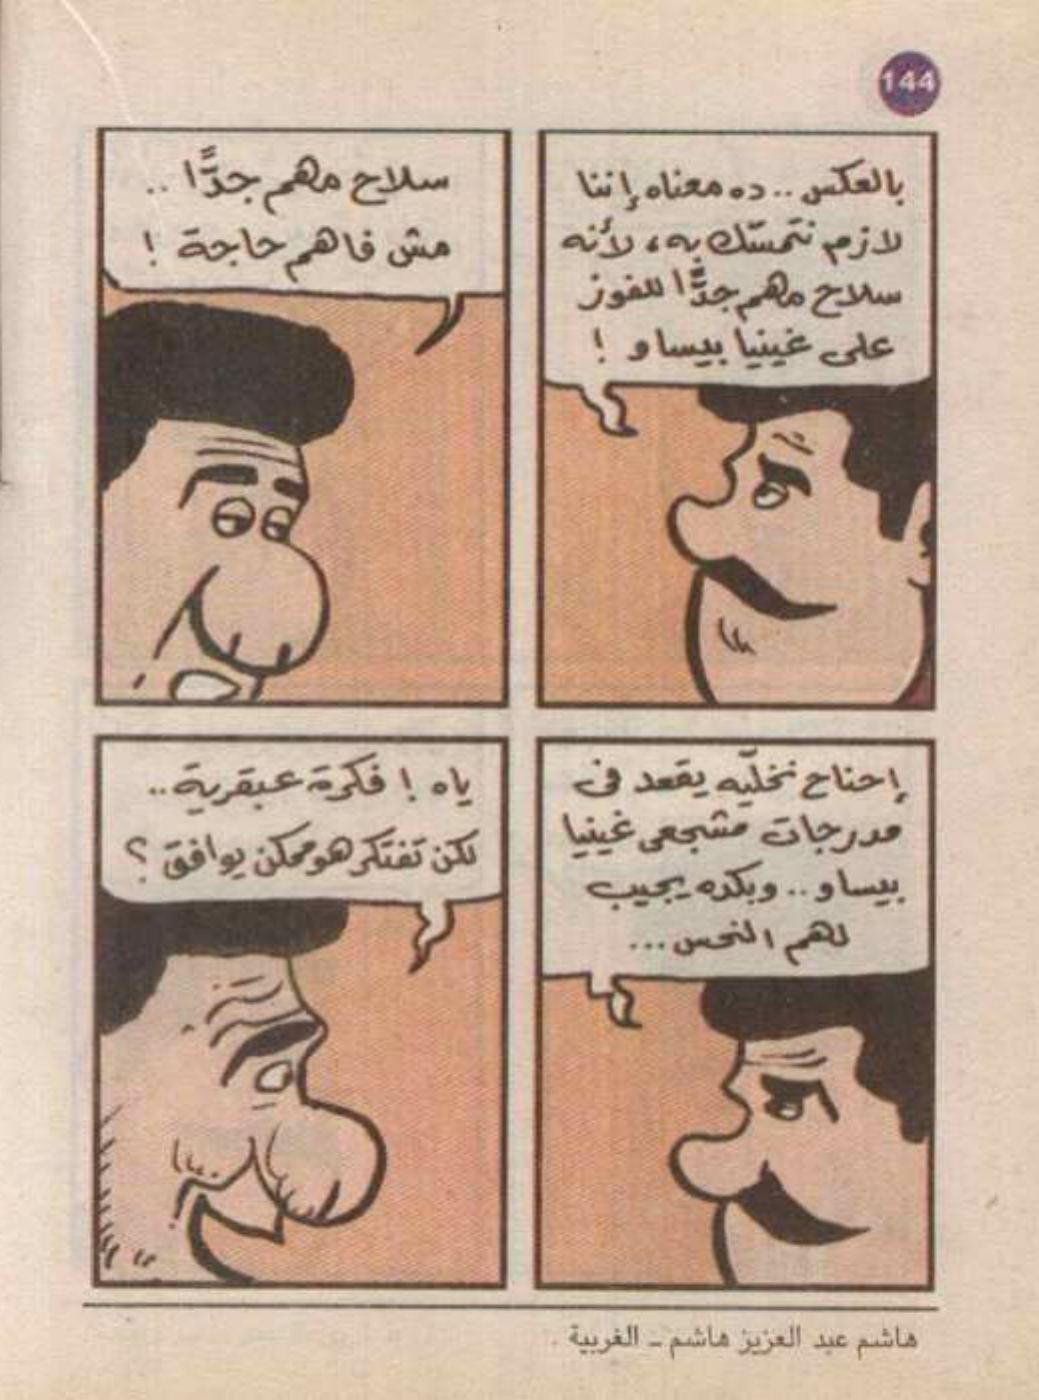 144
بالعكس .. ده معناه إننا
لازم نتمسّك به، لأنه
سلاح مهم جدًّا للفوز
على غينيا بيساو !
سلاح مهم جدًّا ..
مش فاهم حاجة !
إحنا ح نخلّيه يقعد فى
مدرجات مشجعى غينيا
بيساو .. وبكده يجيب
لهم النحس ...
ياه ! فكرة عبقرية ..
لكن تفتكر هو ممكن يوافق ؟
هاشم عبد العزيز هاشم ــ الغربية .